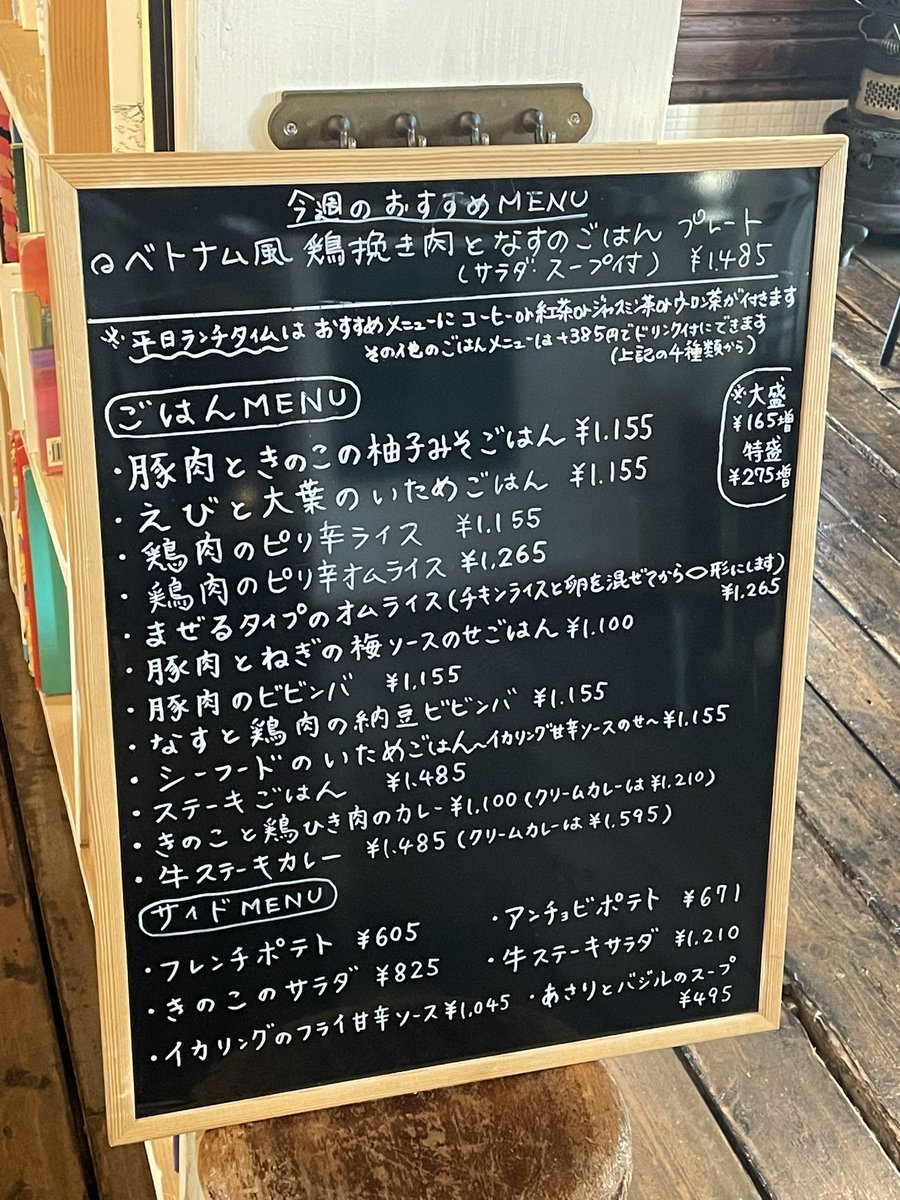 今週のおすすめMENU
◎ベトナム風 鶏挽き肉となすのごはん プレート
(サラダ・スープ付) ¥1.485
※平日ランチタイムは おすすめメニューに コーヒーor紅茶orジャスミン茶orウーロン茶が付きます
その他のごはんメニューは+385円でドリンク付にできます
(上記の4種類から)
ごはんMENU
※大盛
¥165増
特盛
¥275増
・豚肉ときのこの柚子みそごはん ¥1.155
・えびと大葉のいためごはん ¥1.155
・鶏肉のピリ辛ライス ¥1.155
・鶏肉のピリ辛オムライス ¥1.265
・まぜるタイプのオムライス(チキンライスと卵を混ぜてから⬭形にします)
¥1.265
・豚肉とねぎの梅ソースのせごはん ¥1.100
・豚肉のビビンバ ¥1.155
・なすと鶏肉の納豆ビビンバ ¥1.155
・シーフードのいためごはん〜イカリング甘辛ソースのせ〜 ¥1.155
・ステーキごはん ¥1.485
・きのこと鶏ひき肉のカレー ¥1.100 (クリームカレーは ¥1.210)
・牛ステーキカレー ¥1.485 (クリームカレーは ¥1.595)
サイドMENU
・フレンチポテト ¥605
・アンチョビポテト ¥671
・きのこのサラダ ¥825
・牛ステーキサラダ ¥1.210
・イカリングのフライ甘辛ソース ¥1.045
・あさりとバジルのスープ
¥495